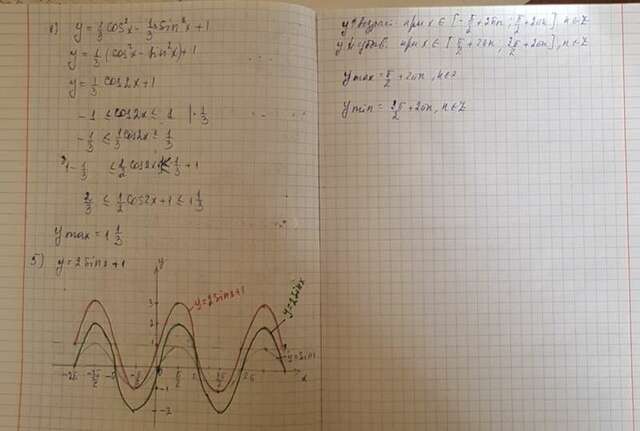 y = 1/3 cos²x - 1/3 sin²x + 1
y = 1/3 (cos²x - sin²x) + 1
y = 1/3 cos2x + 1
-1 ≤ cos2x ≤ 1 | · 1/3
-1/3 ≤ 1/3 cos2x ≤ 1/3
1 - 1/3 ≤ 1/2 cos2x ≤ 1/3 + 1
2/3 ≤ 1/2 cos2x + 1 ≤ 1 1/3
y max = 1 1/3
5) y = 2 sin x + 1
y
3
2
1
-1
-2
x
y = 2 sin x + 1
y = 2 sin x
y = sin x
-2π
π/2
y возрас. при x ∈ [-π/2 + 2πn ; π/2 + 2πn], n ∈ Z
y убыв. при x ∈ [π/2 + 2πn ; 3π/2 + 2πn], n ∈ Z
y max = π/2 + 2πn, n ∈ Z
y min = 3π/2 + 2πn, n ∈ Z